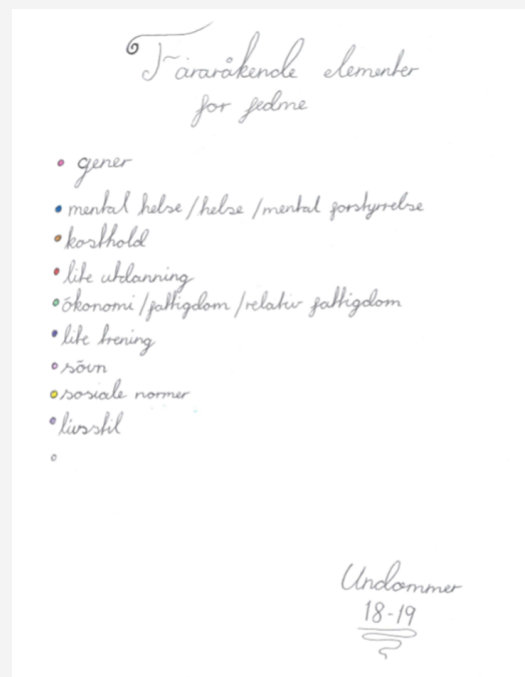 Färaråkende elementer
for fedme
• gener
• mental helse/helse/mental forstyrrelse
• kosthold
• lite utdanning
• ökonomi/fattigdom/relativ fattigdom
• lite trening
• sövn
• sosiale normer
• livsstil
Undommer
18-19